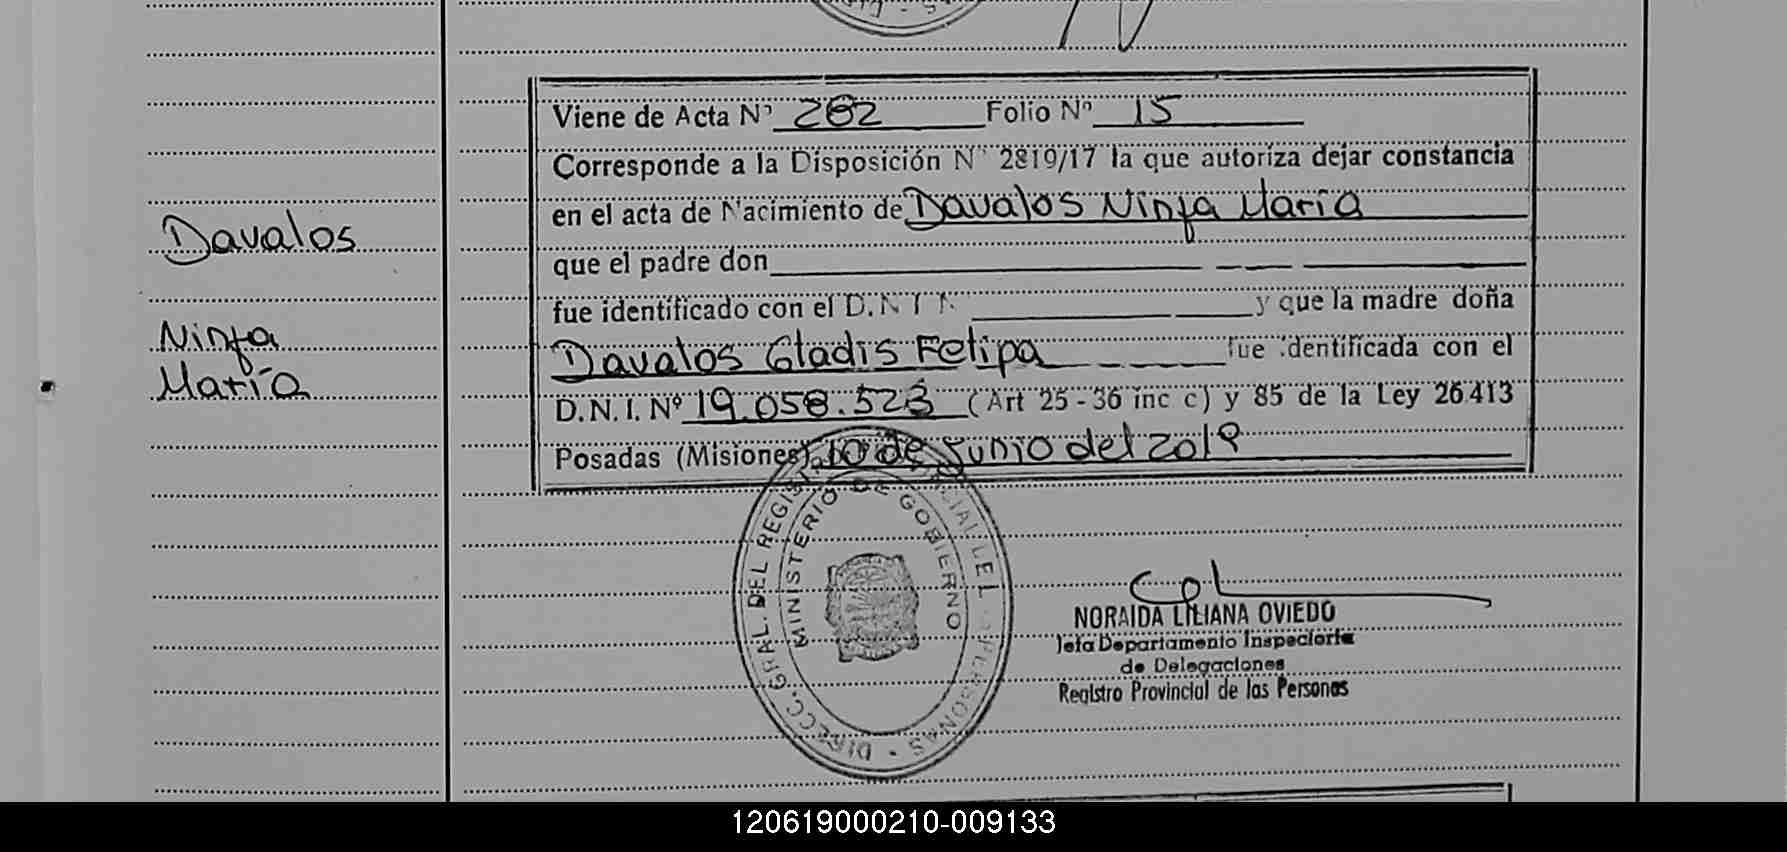 Viene de Acta Nº 282 Folio Nº 15
Corresponde a la Disposición Nº 2819/17 la que autoriza dejar constancia
en el acta de Nacimiento de Davalos Ninfa María
que el padre don
fue identificado con el D.N.I N y que la madre doña
Davalos Gladis Felipa fue identificada con el
D.N.I. Nº 19.058.523 (Art 25 - 36 inc c) y 85 de la Ley 26.413
Posadas (Misiones), 10 de Junio del 2019
Davalos
Ninfa
María
DIRECC. GRAL. DEL REGIS PERSONAS
MINISTERIO DE GOBIERNO
NORAIDA LILIANA OVIEDO
Jefa Departamento Inspectoria
de Delegaciones
Registro Provincial de las Personas
120619000210-009133